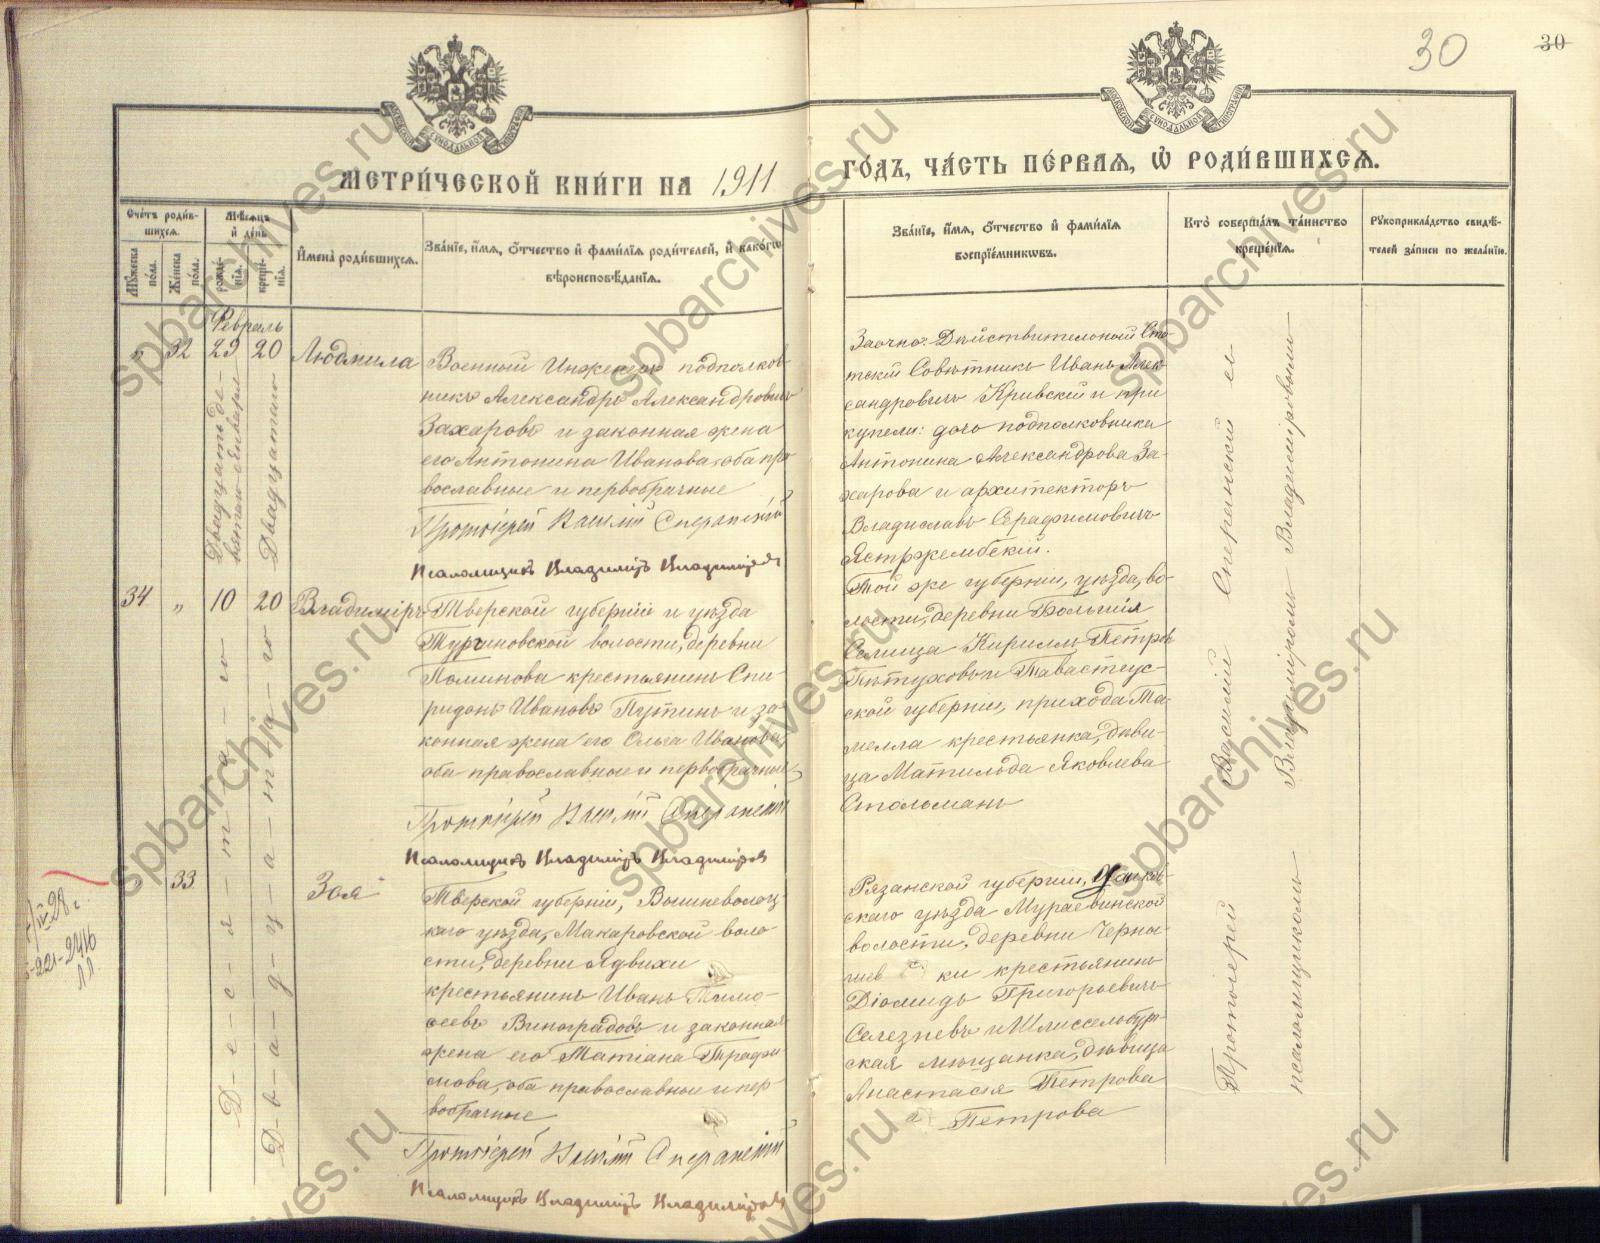 30
30
МЕТРИ́ЧЕСКОЙ КНИ́ГИ НА 1911
ГО́ДЪ, ЧА́СТЬ ПЕ́РВАЯ, Ѡ РОДИ́ВШИХСЯ.
Сче́тъ роди́в-
шихся.
Му́жеска
по́ла.
Же́нска
по́ла.
Мѣ́сяцъ
и де́нь
рожде́-
нія.
креще́-
нія.
Имена̀ роди́вшихся.
Зва́ніе, и́мя, о́тчество и фами́лія роди́телей, и како́гѡ
вѣроисповѣ́данія.
Зва́ніе, и́мя, о́тчество и фами́лія
воспріе́мникѡвъ.
Кто̀ соверша́лъ та́инство
креще́нія.
Рукоприкла́дство свидѣ́-
телей за́писи по жела́нію.
Февраль
" 32 29 20 Людмила
Двадцать де-
вятаго Января
Двадцатаго
Военный Инженеръ подполков-
никъ Александръ Александровичъ
Захаровъ и законная жена
его Антонина Иванова, оба пра
вославные и первобрачные
Протоіерей Василій Сперанскій
Псаломщикъ Владиміръ Владиміровъ
Заочно: Дѣйствительный Ста-
тскій Совѣтникъ Иванъ Алек
сандровичъ Кривскій и при
купели: дочь подполковника
Антонина Александрова За-
харова и архитекторъ
Владиславъ Серафимовичъ
Ястржембскій.
34 " 10 20 Владиміръ
Тверской губерніи и уѣзда
Тургиновской волости, деревни
Поминова крестьянинъ Спи
ридонъ Ивановъ Путинъ и за
конная жена его Ольга Иванова,
оба православные и первобрачные
Протоіерей Василій Сперанскій
Псаломщикъ Владиміръ Владиміровъ
Той же губерніи, уѣзда, во-
лости, деревни Большія
Селища Кириллъ Петровъ
Пѣтуховъ и Тавастгус-
ской губерніи, прихода Та-
мелла крестьянка, дѣви-
ца Матильда Яковлева
Столоманъ
" 33 Зоя
Д-е-с-я-т-а-го
Д-в-а-д-ц-а-т-а-го
Тверской губерніи, Вышневолоц-
каго уѣзда, Макаровской воло
сти, деревни Ядвихи
крестьянинъ Иванъ Тимо-
ѳеевъ Виноградовъ и законная
жена его Татіана Трофи
мова, оба православные и пер-
вобрачные
Протоіерей Василій Сперанскій
Псаломщикъ Владиміръ Владиміровъ
Рязанской губерніи,
скаго уѣзда Мураевинской
волости, деревни Черны-
шев ки крестьянинъ
Діомидъ Григорьевичъ
Селезневъ и Шлиссельбург-
ская мѣщанка, дѣвица
Анастасія Петрова
Петрова
Протоіерей Василій Сперанскій съ
псаломщикомъ Владиміромъ Владиміровымъ
spbarchives.ru
spbarchives.ru
spbarchives.ru
spbarchives.ru
spbarchives.ru
spbarchives.ru